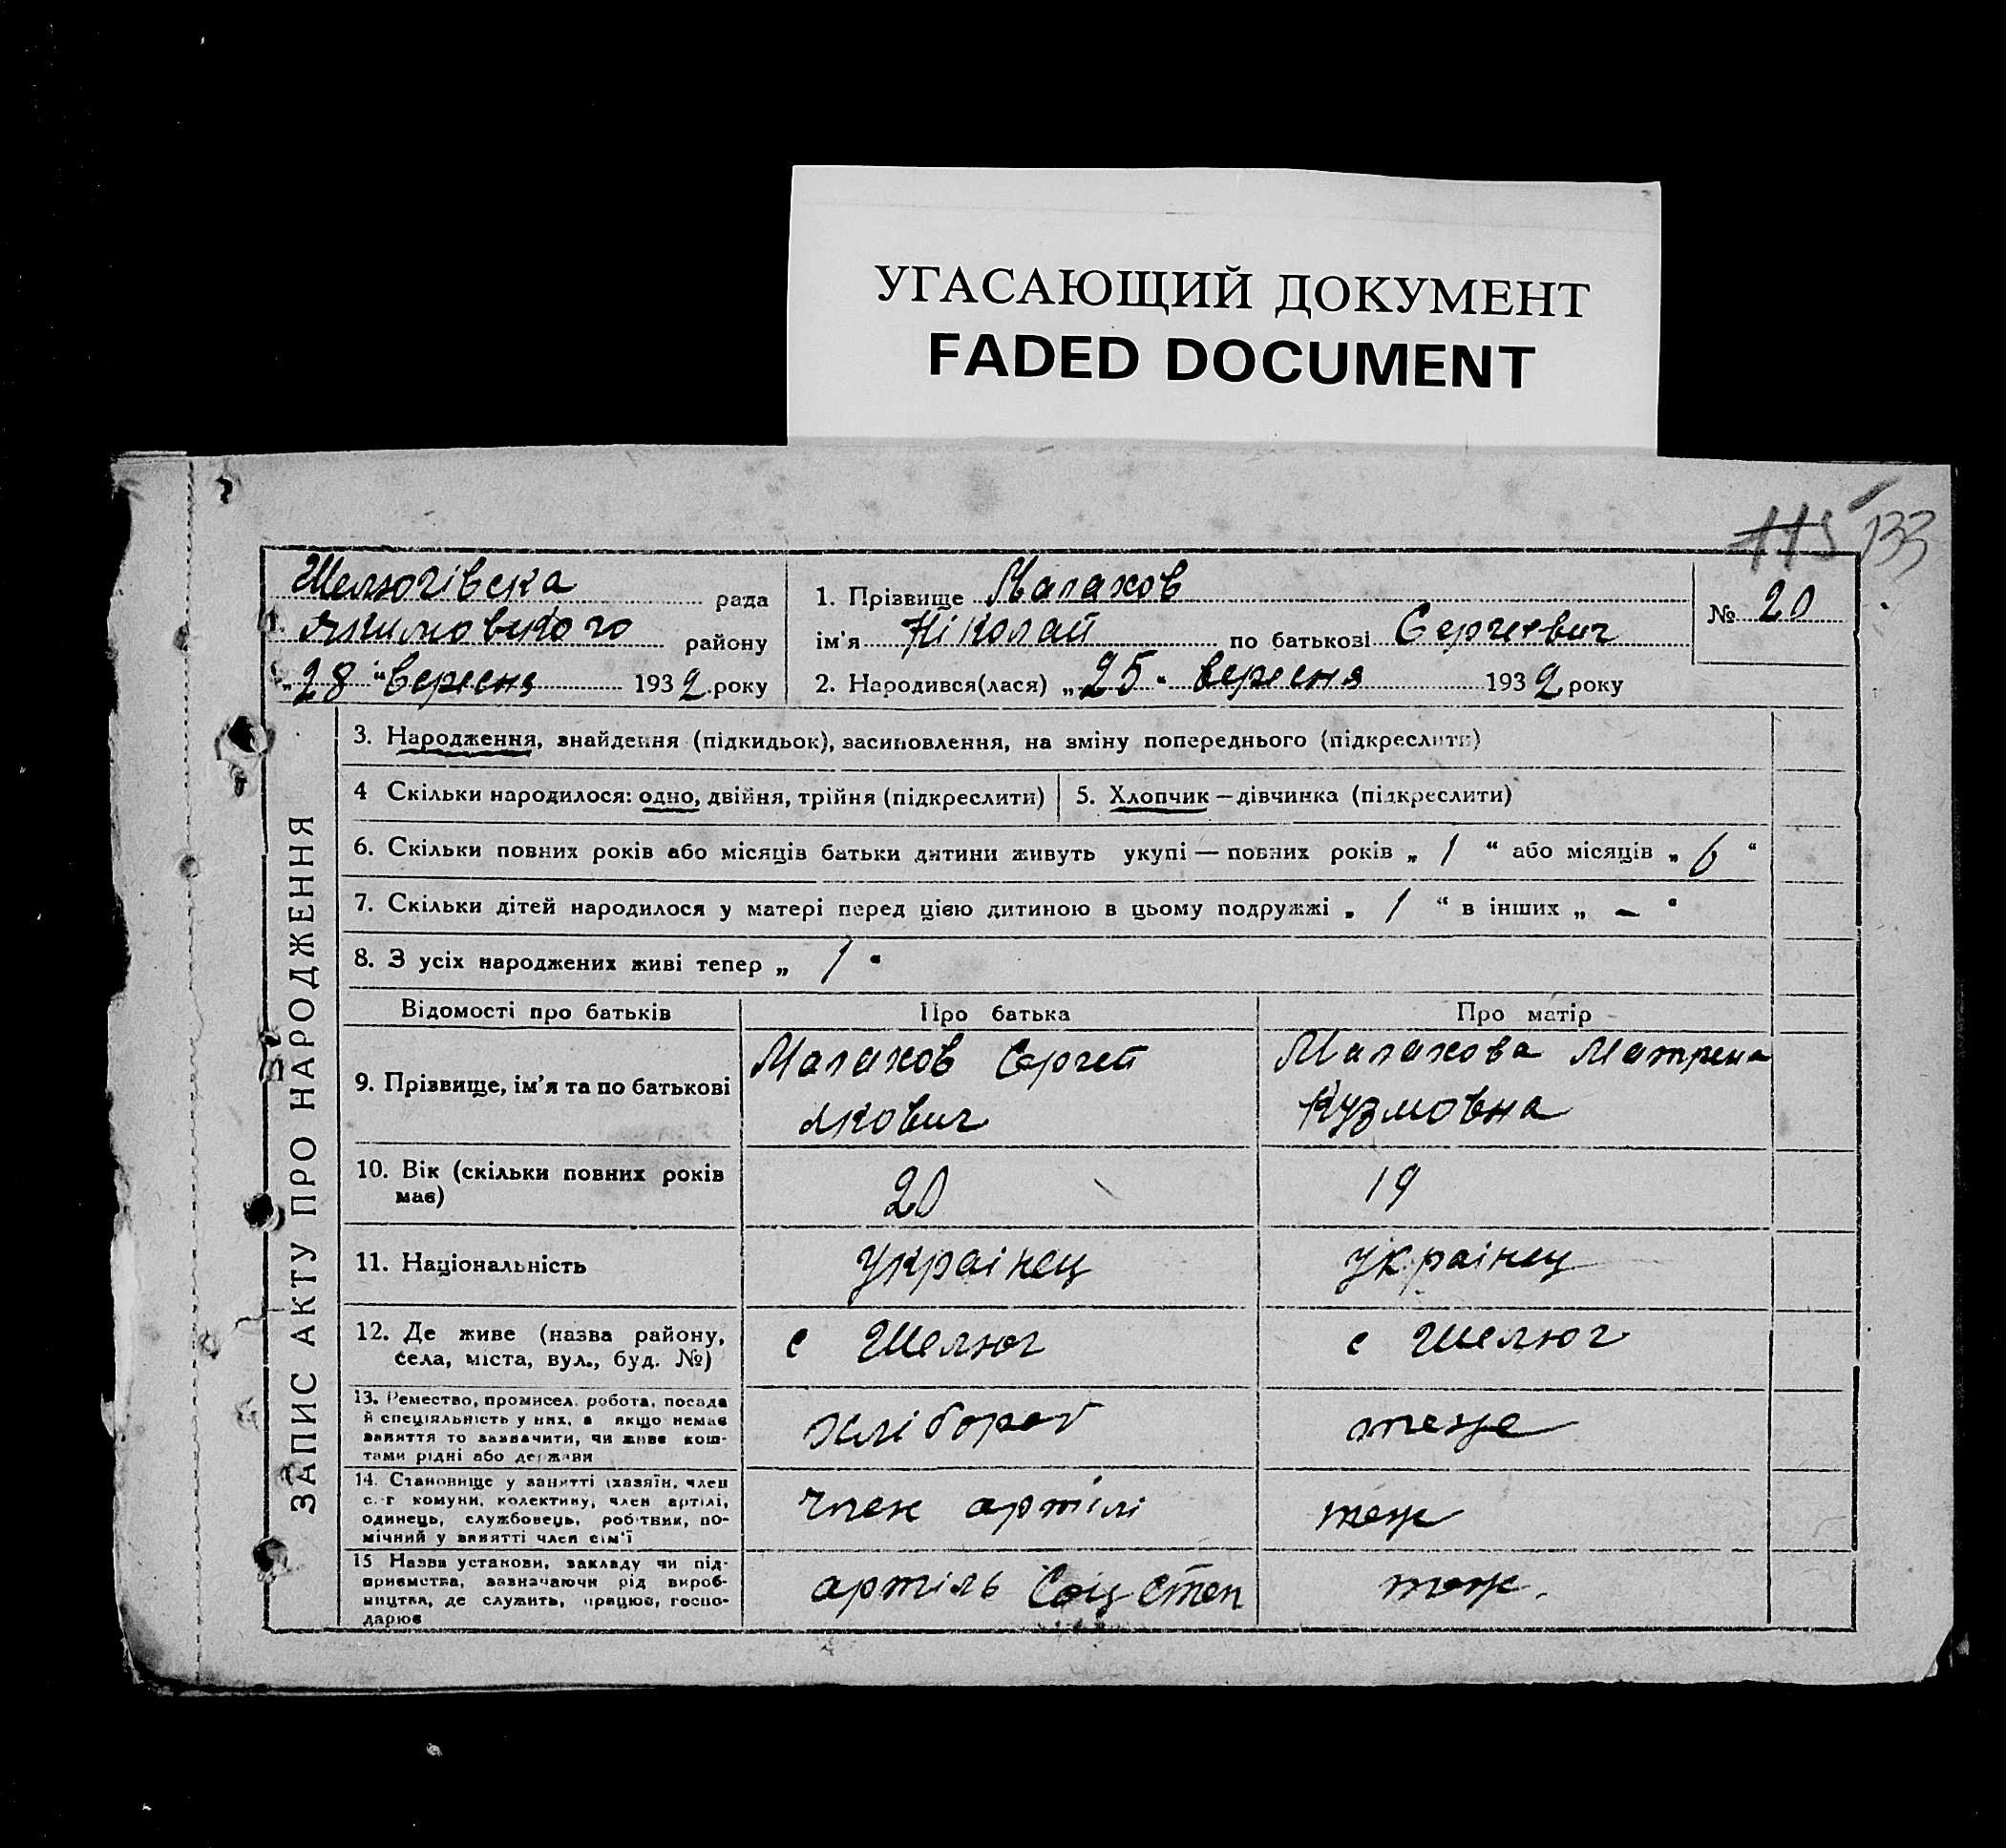 УГАСАЮЩИЙ ДОКУМЕНТ
FADED DOCUMENT
115 133
Шелюгівска рада
Якимовського району
„28“ вересня 1932 року
1. Прізвище Малахов
ім'я Ніколай по батькові Сергієвич
2. Народився(лася) „25“ вересня 1932 року
№ 20
ЗАПИС АКТУ ПРО НАРОДЖЕННЯ
3. Народження, знайдення (підкидьок), засиновлення, на зміну попереднього (підкреслити)
4 Скільки народилося: одно, двійня, трійня (підкреслити)
5. Хлопчик — дівчинка (підкреслити)
6. Скільки повних років або місяців батьки дитини живуть укупі — повних років „ 1 “ або місяців „ 6 “
7. Скільки дітей народилося у матері перед цією дитиною в цьому подружжі „ 1 “ в інших „ — “
8. З усіх народжених живі тепер „ 1 “
Відомості про батьків Про батька Про матір
9. Прізвище, ім'я та по батькові
Малахов Сергей
Якович
Малахова Матрена
Кузмовна
10. Вік (скільки повних років
має)
20
19
11. Національність
українец
українец
12. Де живе (назва району,
села, міста, вул., буд. №)
с Шелюг
с Шелюг
13. Ремество, промисел, робота, посада
й спеціяльність у них, а якщо немає
заняття то зазначити, чи живе кош-
тами рідні або держави
хлібороб
теже
14. Становище у занятті (хазяїн, член
с.-г комуни, колективу, член артілі,
одинець, службовець, робітник, по-
мічний у занятті член сім'ї
член артілі
теж
15 Назва установи, закладу чи під-
приємства, зазначаючи рід вироб-
ництва, де служить, працює, госпо-
дарює
артіль Соц Степ
теж.